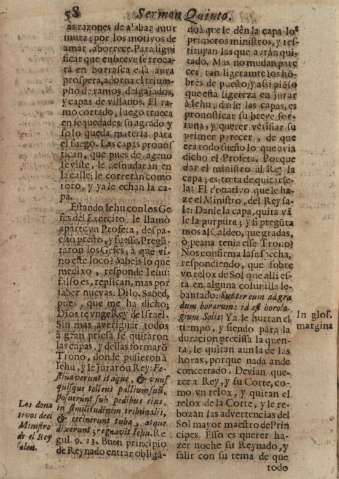 58 Sermon Quinto.
as razones de alabar mur
murar; por los motivos de
amar, aborrecer. Para signi
ficar que en breve se troca
rà en borrasca esta aura
prospera, adornan el trium
pho de ramos, de lagados,
y capas de vistarios. El ra
mo cortado, luego trueca
en sequedades su agrado y
solo queda materia para
el fuego. Las capas pronos
tican, que pues de ageno
le viste, le desnudaràn en
la calle, le correràn como
toro, y ya le echan la ca
pa.
Estando Iehu con los Ge
fes del Exercito, le llamò
aparte un Profeta, despa
chò presto, y fuesse. Pregũ
taron los Gefes, à que vi
no este loco? Sabeis lo que
me dixo, responde Iehu:
falso es, replican, mas por
saber nuevas. Dilo. Sabed,
pues, que me ha dicho;
Dios te unge Rey de Israel.
Sin mas averiguar todos
à gran priesa se quitaron
las capas, y dellas formarõ
Trono, donde pusieron à
Iehu, y le juraron Rey: Fes
tinaverunt itaque, & unus
quisque tollens pallium suũ,
posuerunt sub pedibus eius,
in similitudinem tribunalis,
& cecinerunt tuba, atque
dixerunt; regnavit Iehu. Re
gul. 9. 13. Buen principio
de Reynado entrar obligã
Los dona
tivos del
Ministro
de el Rey
salen.
dò à que le dèn la capa lo
primeros ministros, y res
tituyan las que avian qui
tado. Mas no mudan pare
ces, tan ligeramte los hõ
bres de puesto; y assi piẽso
que esta ligereza en jurar
à Iehu, dandole las capas, es
pronosticar su breve for
tuna, y querer versificar su
primer parecer, de que
era todo sueño lo que avia
dicho el Profeta. Porque
dar el ministro al Rey la
capa; es treta de quitarse
la: El donativo que le ha
ze el Ministro, del Rey sa
le: Danle la capa, quita và
le la purpura; y si pregũta
mos al Caldeo, que grada,
ò peana tenia esse Trono?
Nos confirma la sospecha,
respondiendo, que sobre
un relox de Sol que alli es
ta en alguna colunilla le
bantado: Iuxter eum ad gra
dum horarum: id est horolo
gium Solis; Ya le hurtan el
tiempo, y siendo para la
duracion precissa la quen
ta, le quitan aun la de las
horas, porque nada ande
concertado. Devian que
rer à Rey, y su Corte, co
mo un relox, y quitan el
relox de la Corte, y le re
bozan las advertencias del
Sol mayor maestro de Prin
cipes. Esso es querer ha
zer noche su Reynado, y
salir con su tema de que
todo
In glos.
margina